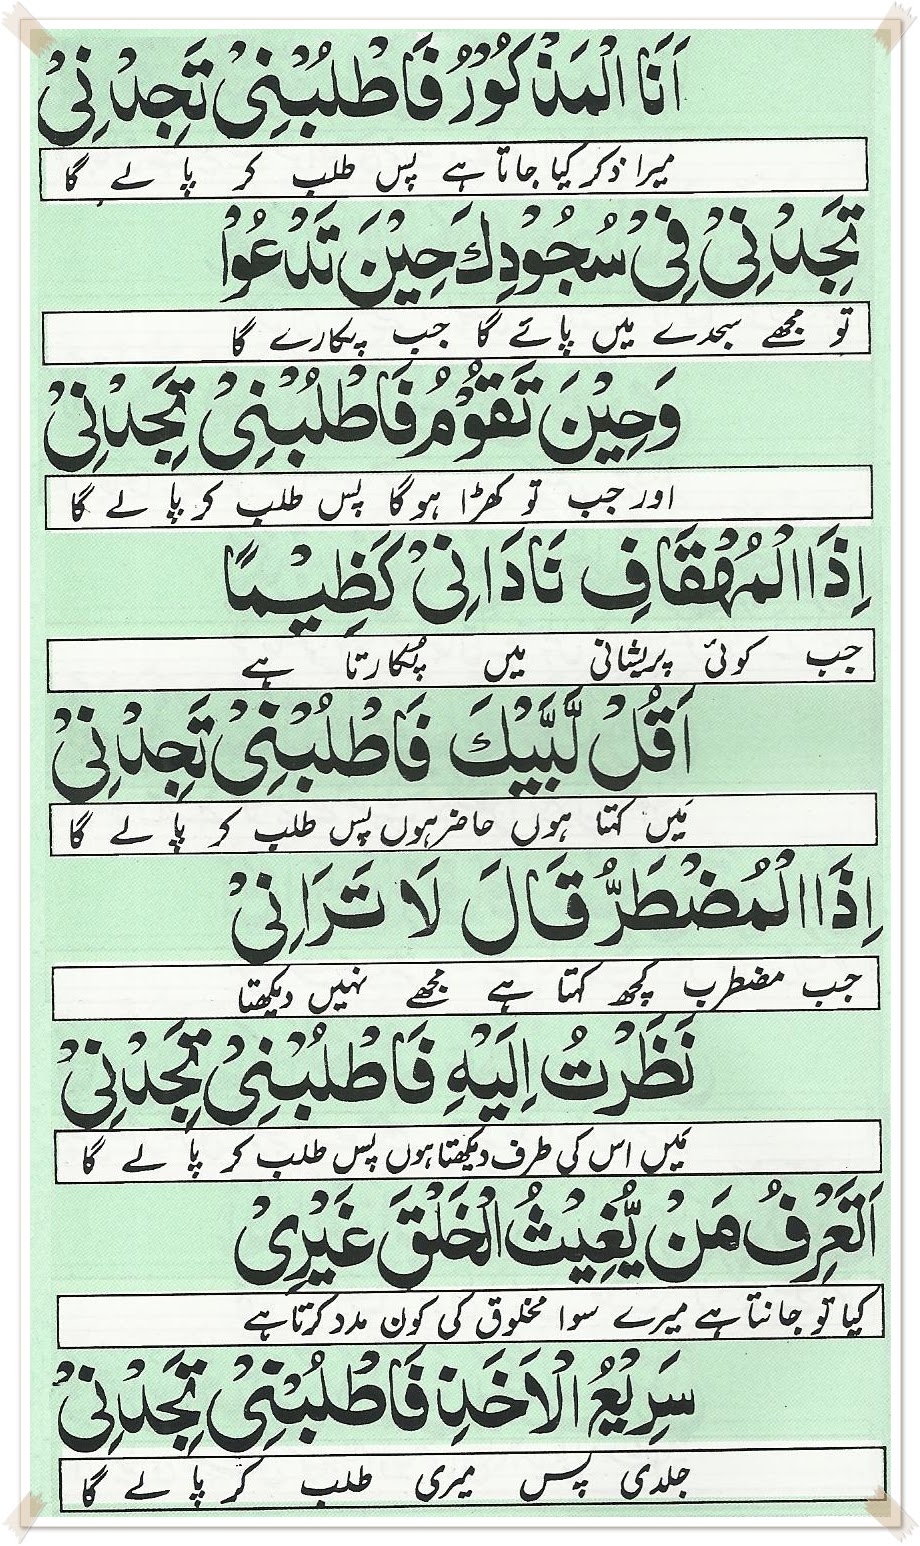 اَنَا الْمَذْكُوْرُ فَاطْلُبْنِىْ تَجِدْنِىْ
میرا ذکر کیا جاتا ہے پس طلب کر پا لے گا
تَجِدْنِىْ فِىْ سُجُوْدِكَ حِيْنَ تَدْعُوْا
تو مجھے سجدے میں پائے گا جب پکارے گا
وَحِيْنَ تَقُوْمُ فَاطْلُبْنِىْ تَجِدْنِىْ
اور جب تو کھڑا ہوگا پس طلب کر پا لے گا
اِذَا الْمُهْقَافِ نَادَانِىْ كَظِيْمًا
جب کوئی پریشانی میں پُکارتا ہے
اَقُلْ لَّبَّيْكَ فَاطْلُبْنِىْ تَجِدْنِىْ
مَیں کہتا ہوں حاضر ہوں پس طلب کر پا لے گا
اِذَا الْمُضْطَرُّ قَالَ لَا تَرَانِىْ
جب مضطرب کچھ کہتا ہے مجھے نہیں دیکھتا
نَظَرْتُ اِلَيْهِ فَاطْلُبْنِىْ تَجِدْنِىْ
مَیں اس کی طرف دیکھتا ہوں پس طلب کر پا لے گا
اَتَعْرِفُ مَنْ يُّغِيْثُ الْخَلْقَ غَيْرِىْ
کیا تو جانتا ہے میرے سوا مخلوق کی کون مدد کرتا ہے
سَرِيْعُ الْاَخَذِ فَاطْلُبْنِىْ تَجِدْنِىْ
جلدی پس میری طلب کر پا لے گا